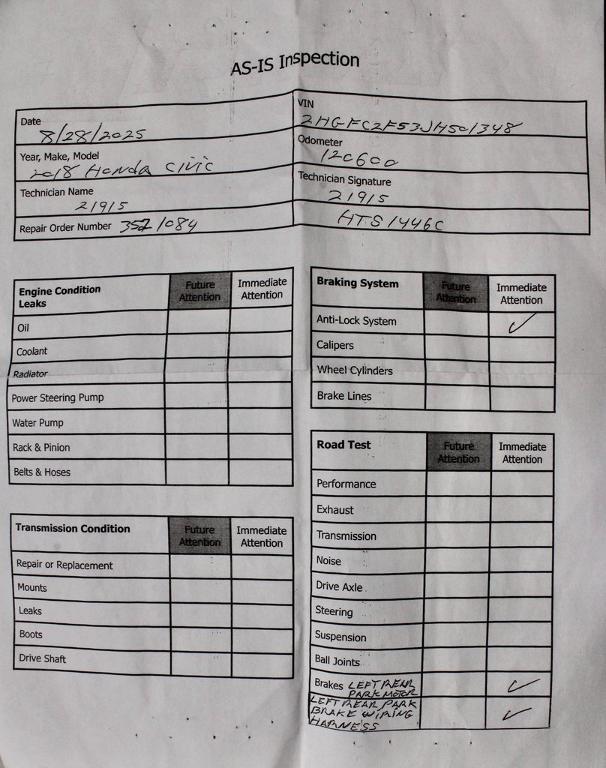 AS-IS Inspection
Date
8/28/2025
VIN
2HGFC2F53JH501348
Year, Make, Model
2018 Honda Civic
Odometer
120600
Technician Name
21915
Technician Signature
21915
Repair Order Number 3521084
HTS1446C
Engine Condition
Leaks
Future
Attention
Immediate
Attention
Oil
Coolant
Radiator
Power Steering Pump
Water Pump
Rack & Pinion
Belts & Hoses
Transmission Condition
Future
Attention
Immediate
Attention
Repair or Replacement
Mounts
Leaks
Boots
Drive Shaft
Braking System
Future
Attention
Immediate
Attention
Anti-Lock System ✓
Calipers
Wheel Cylinders
Brake Lines
Road Test
Future
Attention
Immediate
Attention
Performance
Exhaust
Transmission
Noise
Drive Axle
Steering
Suspension
Ball Joints
Brakes LEFT REAR
PARK MOTOR ✓
LEFT REAR PARK
BRAKE WIRING ✓
HARNESS